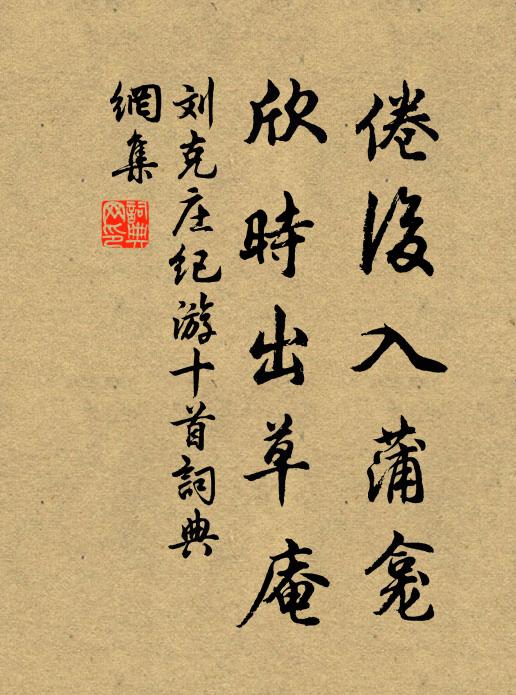 倦後入蒲龕
欣時出草庵
刘克庄纪游十首詞典
網集
詞典
网印